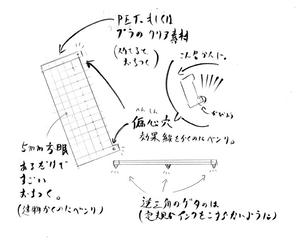 PET、もしくは
プラのクリア素材
こんなかんじ。
がびょう
へんしん
偏心穴
効果線をかくのにベンリ。
5mm方眼
あるだけで
すごい
おちつく。
(建物かくのにベンリ)
逆三角のゲタのは
(定規がインクをこすらないように)